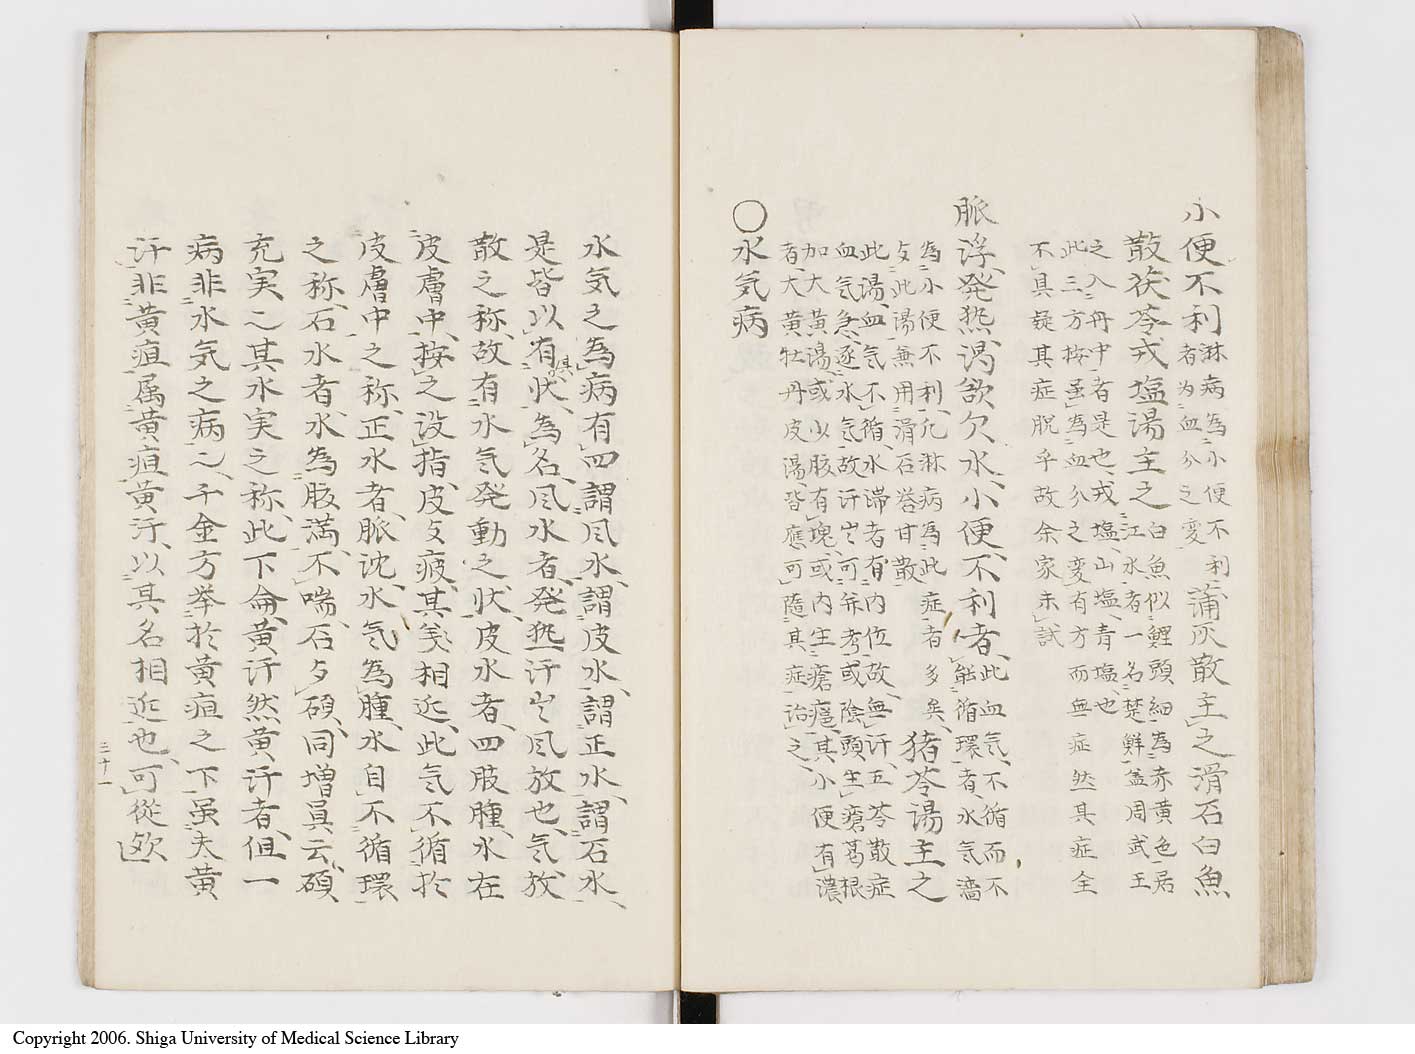 小便不利淋病為小便不利者为血分之変蒲灰散主之滑石白魚
散茯苓戎塩湯主之白魚似鯉頭細為赤黄色居江水者一名楚鮮盖周武王
之入丹中者是也戎塩山塩青塩也
此三方按虽為血分之変有方而無症然其症全
不具疑其症脱乎故余家未試
脈浮発热渇欲欠水小便不利者此血気不循而不能循環者水気濇
為小便不利凢淋病為此症者多矣猪苓湯主之
攴此湯兼用滑石莟甘散
此湯血気不循水滞者有内位故無汗五苓散症
血気急逐水气故汗出可并考或陰頭生瘡葛根
加大黄湯或小腹有塊或内生瘡瘟其小便有濃
者大黄牡丹皮湯皆應可随其症治之
〇水気病
水気之為病有四謂风水謂皮水謂正水謂石水
是皆以有状為名风水者発热汗出风放也气放
散之称故有水气発動之状皮水者四肢腫水在
皮膚中按之没指皮攴疲其矣相近此气不循於
皮膚中之称正水者脈沈水气為腫水自不循環
之称石水者水為腹満不喘石夕碩同増具云碩
充実之其水実之称此下侖黄汗然黄汗者但一
病非水気之病之千金方挙於黄疸之下虽夫黄
汗非黄疸属黄疸黄汗以其名相近也可従欤
三十一
Copyright 2006. Shiga University of Medical Science Library